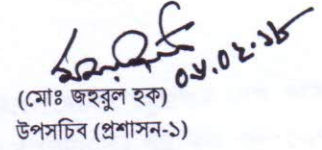 ০৮.০২.১৮
(মোঃ জহুরুল হক)
উপসচিব (প্রশাসন-১)